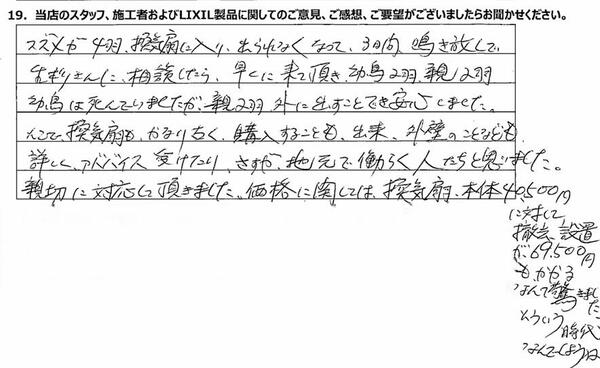 19. 当店のスタッフ、施工者およびLIXIL製品に関してのご意見、ご感想、ご要望がございましたらお聞かせください。
スズメが4羽、換気扇に入り、出られなくなって、3日間、鳴き放して、
さんに、相談したら、早くに来て頂き、幼鳥2羽、親2羽
幼鳥は死んでいましたが、親2羽、外に出すことでき安心しました。
換気扇も、かなり古く、購入することも、出来、外壁のことなども、
詳しく、アドバイス受けたり、さすが、地元で働らく人たちと思いました。
親切に対応して頂きました。価格に関しては、換気扇、本体40,500円
に対して
撤去、設置
が、69,500円
もかかる
なんて驚きました
そういう時代
なんでしょうね